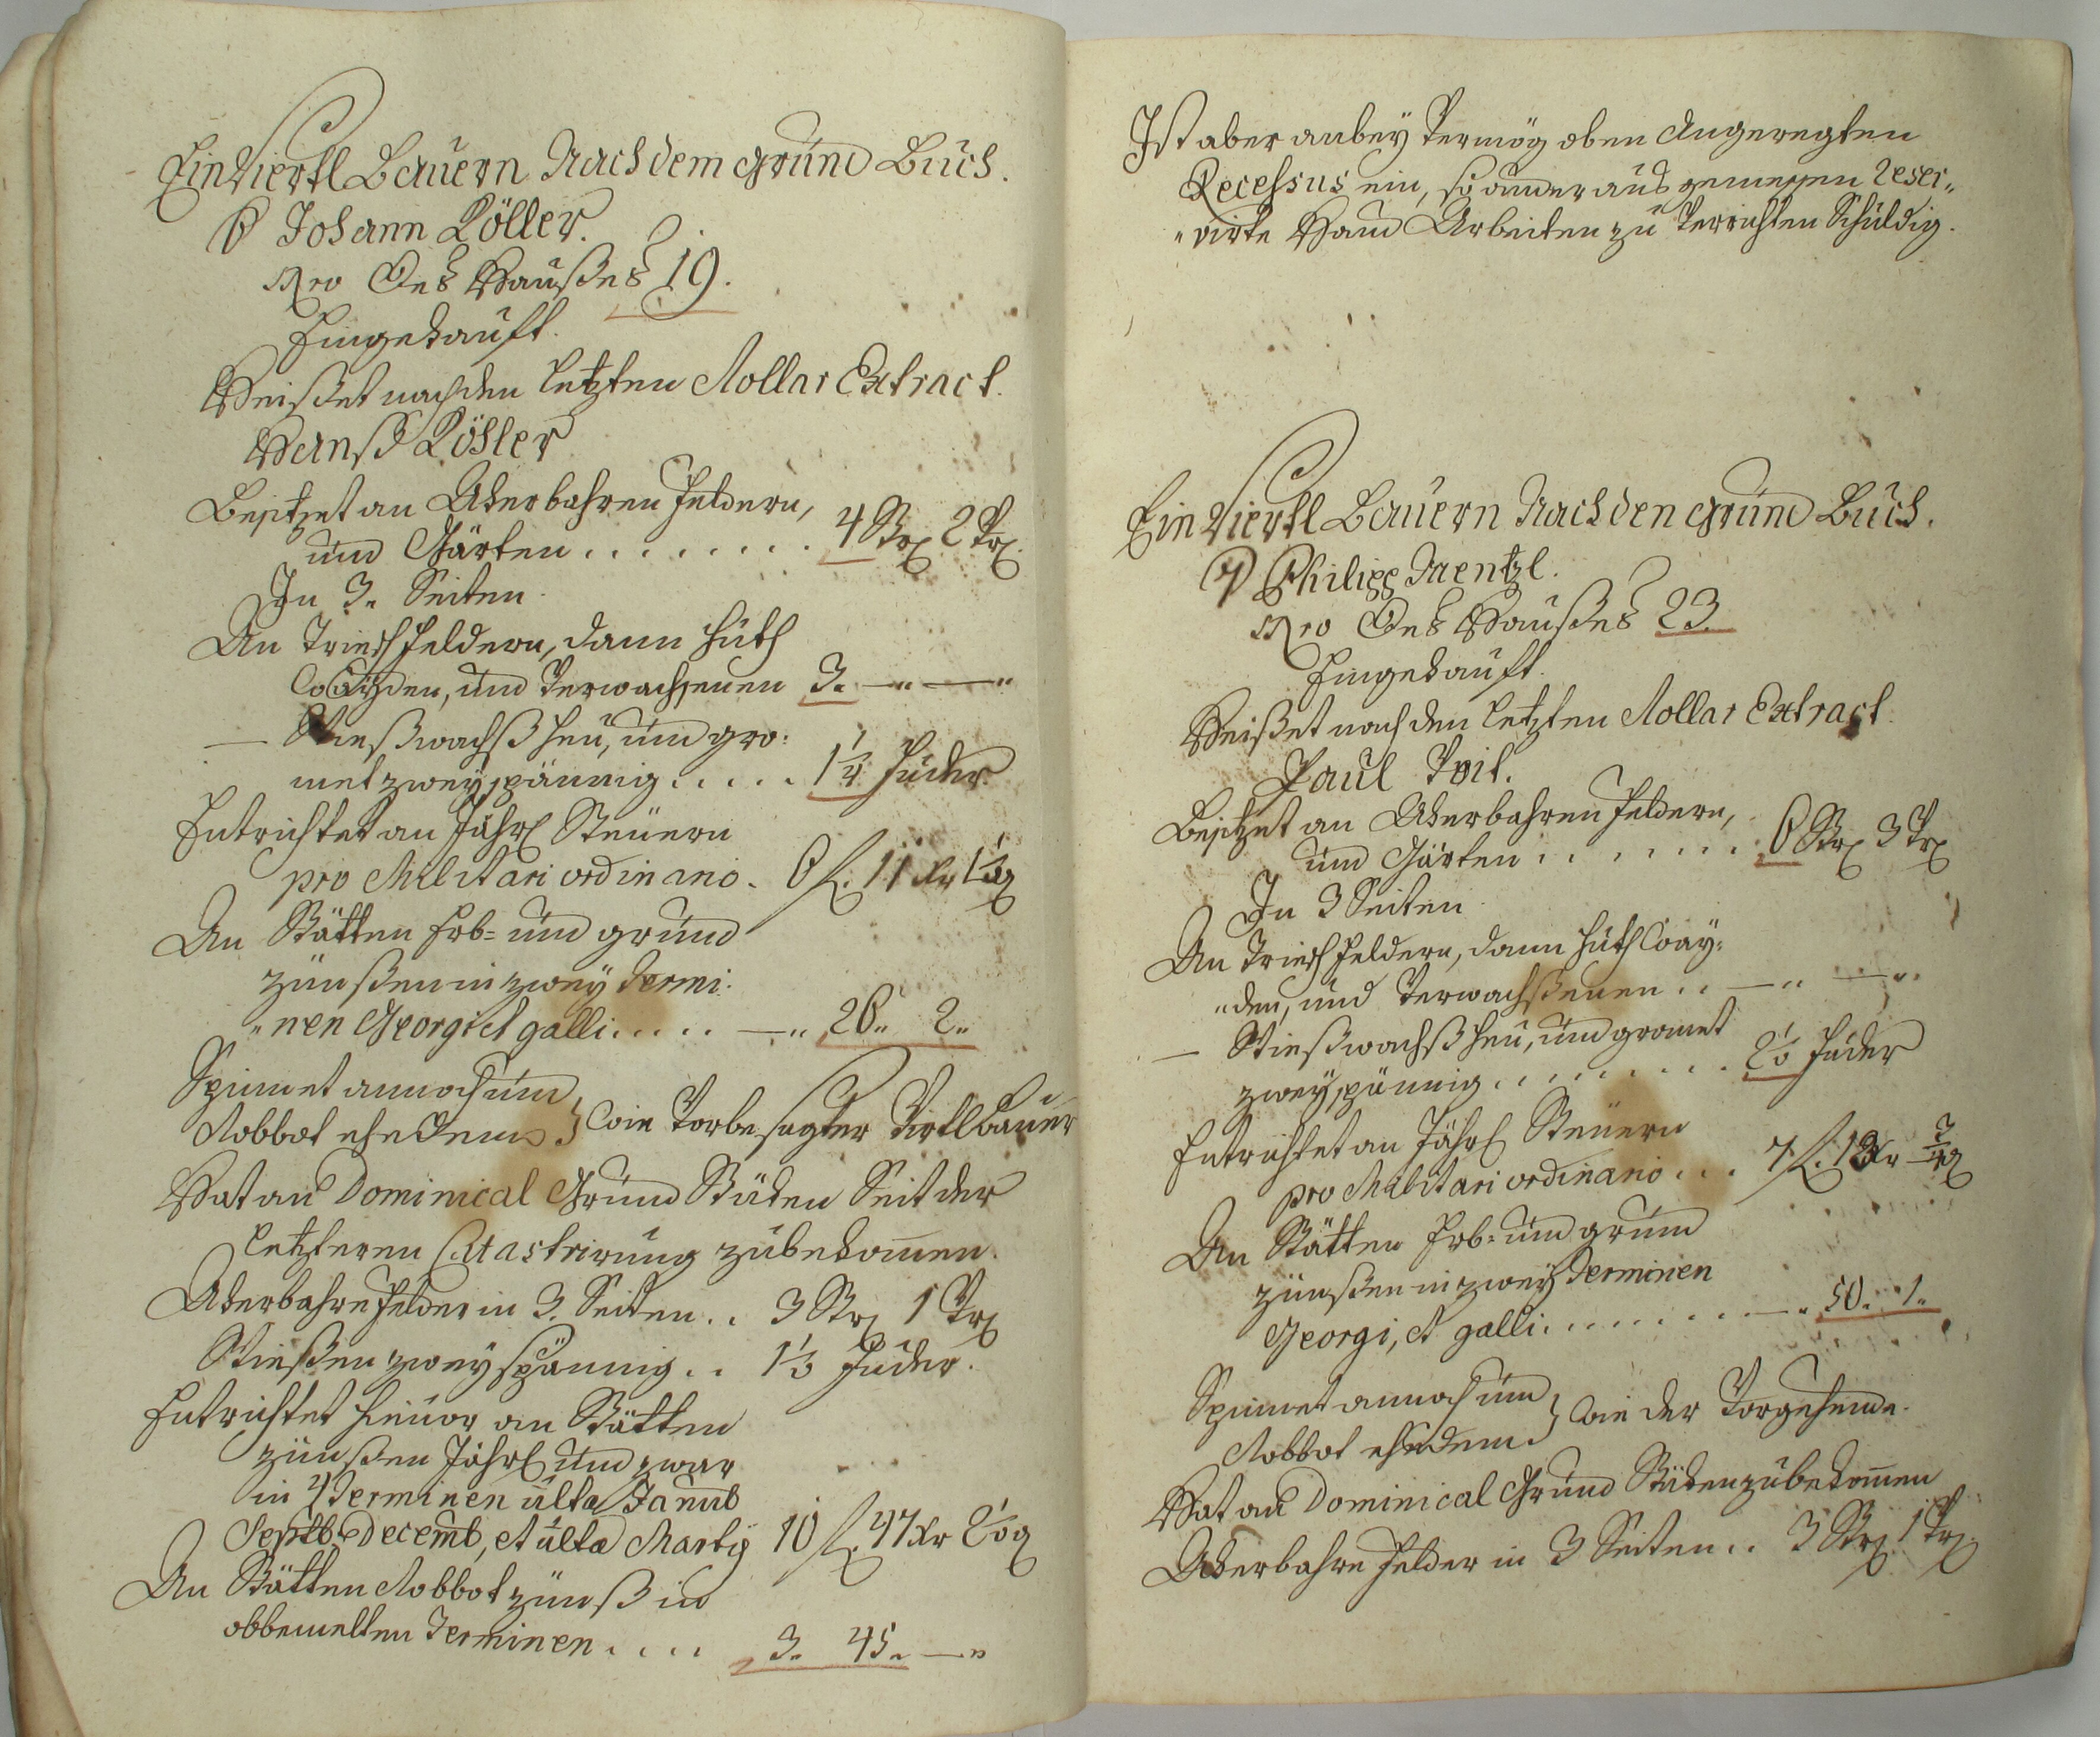 Ein Viertl Bauern Nach dem Grund Buch.
6 Johann Köller.
Nro Des Haußes 19.
Eingekauft.
Heißet nach den letzten Rollar Extract.
Hanß Köhler
Besitzet an Akerbahren Feldern,
und Gärten . . . . . . . . 4 Str 2 Vr
In 3. Seiten.
An Triesch Feldern, dann Huth
Wayden, und Verwachsenen 3. —„ —„
— Wießwachß Heu, und gro:
met zweyspännig . . . . . 1 1/4 Fuder
Entrichtet an Jährl Steuern
pro Militari ordinario. 6 f. 11 kr 1 1/3 d
An Stätten Erb= und Grund
zünßen in zwey Termi:
„nen Georgi et Galli . . . . . —„ 26„ 2„
Spinnet annoch und
Robbot ehedem } Wie Vorbesagter Virtl Bauer
Hat an Dominical Grund Stüken Seit der
letzteren Catastrirung zubekommen.
Akerbahre Felder in 3. Seiten . . 3 Str 1 Vr
Wießen zweyspännig . . 1 1/3 Fuder.
Entrichtet hievor an Stätten
zünßen Jährl und zwar
in 4 Terminen ulta Janub
Septb. Decemb, et ulta Martij 10 f. 47 kr 2 1/6 d
An Stätten Robbot zünß in
obbemelten Terminen . . . . 3. 45. —„
Ist aber anbey Vermög oben Angeregten
Recessus ein, so anderaus gemessen reser„
„virte Hand Arbeiten zu Verrichten Schuldig.
Ein Viertl Bauern Nach den Grund Buch.
7 Philipp Taentzl.
Nro Des Haußes 23.
Eingekauft.
Heißet nach den letzten Rollar Extract.
Paul Veit.
Besitzet an Akerbahren Feldern,
und Gärten . . . . . . . . 6 Str 3 Vr
In 3 Seiten.
An Triesch Feldern, dann Huth Way:
„den, und Verwachßenen . . —„ —„
— Wießwachß Heu, und Gromet
zweyspännig . . . . . . . . . 2 1/6 Fuder
Entrichtet an Jährl Steuern
pro Militari ordinario . . . 7 f. kr
An Stätten Erb= und Grund
zünßen in zwey Terminen
Georgi, et Galli . . . . . . . . . —„ 50. 1.
Spinnet annoch und
Robbot ehedem } Wie der Vorgehende.
Hat an Dominical Grund Stüken zubekommen
Akerbahre Felder in 3 Seiten . . 3 Str 1 Vr